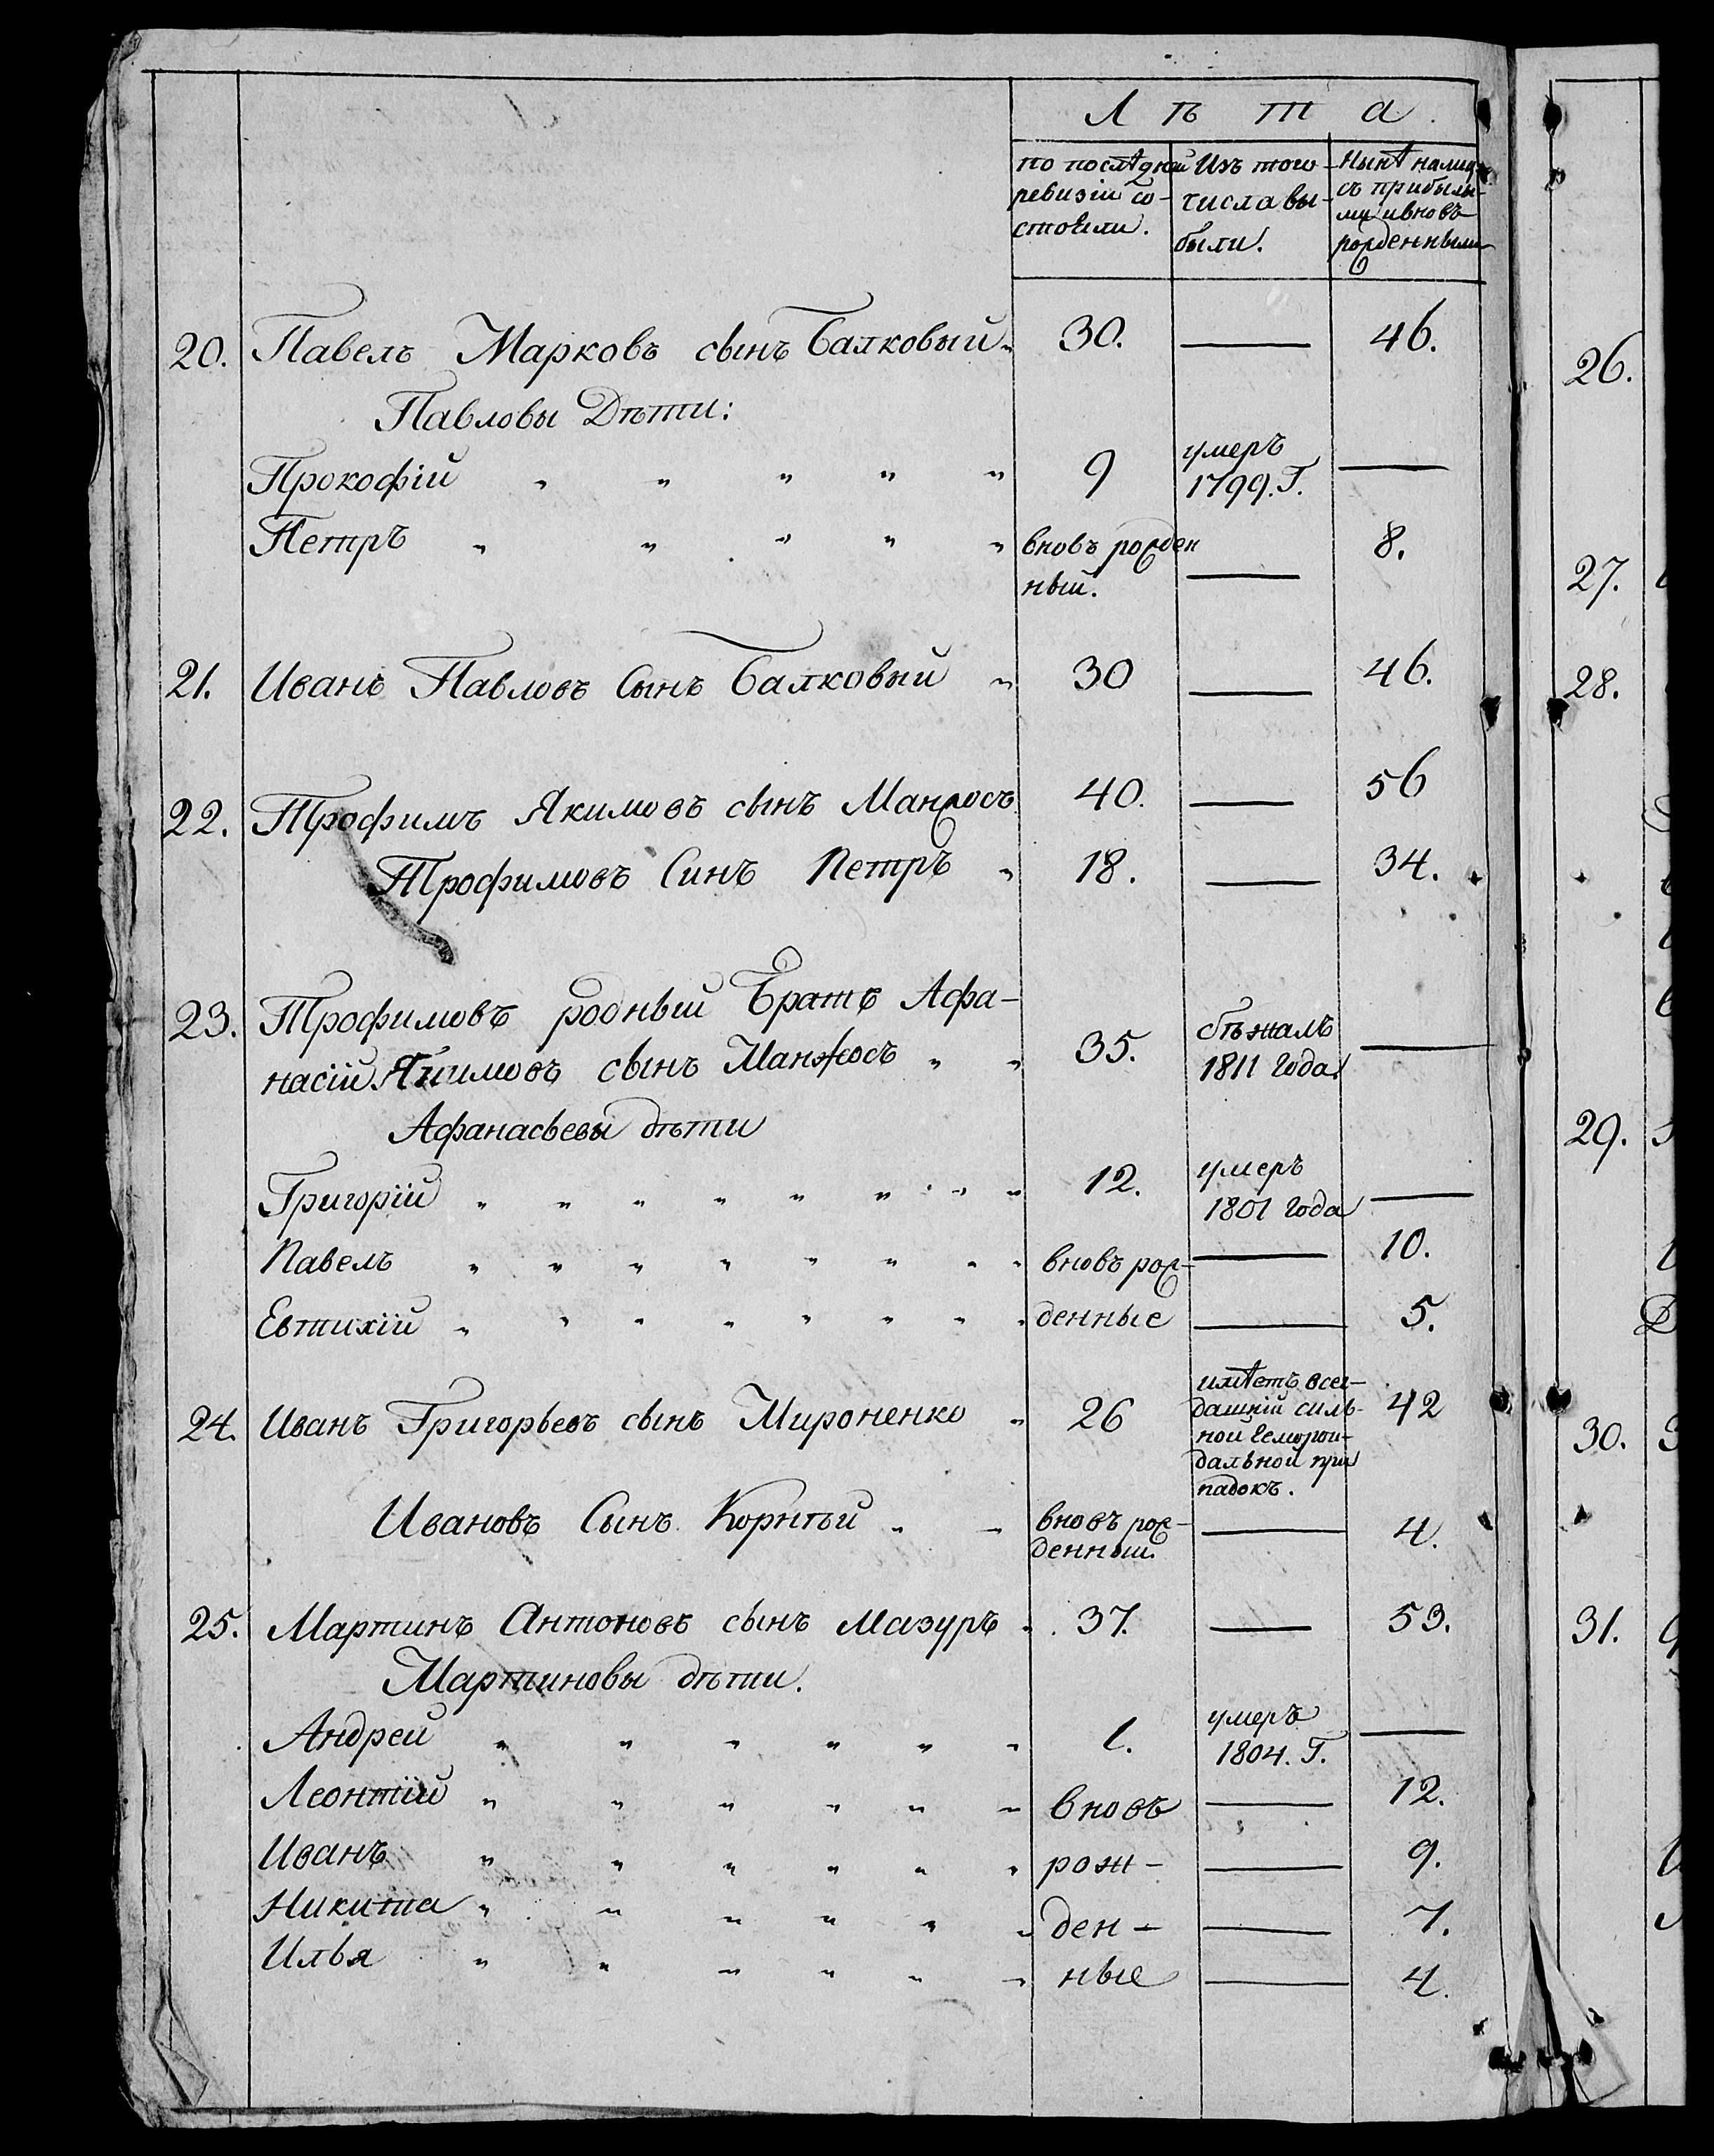 Лѣта.
по послѣдней ревизіи состояли.
Изъ того числа выбыли.
Нынѣ налицо съ прибылыми и вновь рожденными
20. Павелъ Марковъ сынъ Балковый 30. — 46.
Павловы Дѣти:
Прокофій " " " " " 9 умеръ 1799. Г. —
Петръ " " " " " вновь рожденный. — 8.
21. Иванъ Павловъ Сынъ Балковый " 30 — 46.
22. Трофимъ Якимовъ сынъ Манжосъ 40. — 56
Трофимовъ Синъ Петръ " 18. — 34.
23. Трофимовъ родный Братъ Афа-
насій Якимовъ сынъ Манжосъ " " 35. бѣжалъ 1811 года —
Афанасьевы дѣти
Григорій " " " " " " " " 12. умеръ 1801 года —
Павелъ " " " " " " " " вновь рож- — 10.
Евтихій " " " " " " " " денные — 5.
24. Иванъ Григорьевъ сынъ Мироненко " 26 имѣетъ всег-
дашній силь-
ной геморои-
дальной при
падокъ. 42
Ивановъ Сынъ Корнѣй " " вновь рож-
денный. — 4.
25. Мартинъ Антоновъ сынъ Мазуръ " 37. — 53.
Мартиновы дѣти.
Андрей " " " " " " 1. умеръ 1804. Г. —
Леонтій " " " " " " вновь — 12.
Иванъ " " " " " " рож- — 9.
Никита " " " " " " ден- — 7.
Илья " " " " " " ные — 4.
26.
27.
28.
29.
30.
31.